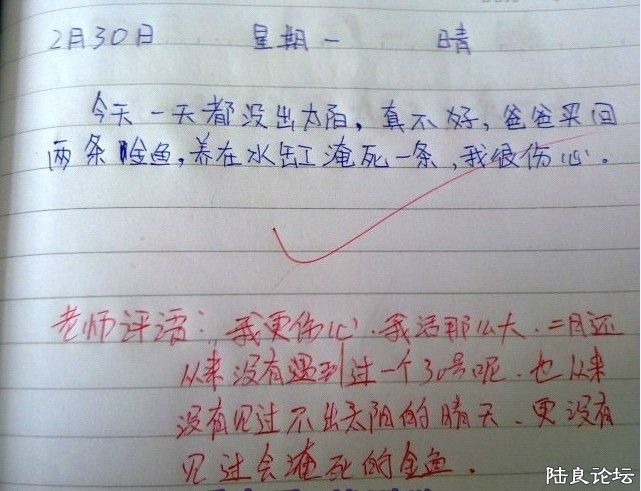 2月30日 星期一 晴
今天一天都没出太阳，真不好，爸爸买回
两条金鱼，养在水缸淹死一条，我很伤心。
老师评语：我更伤心．我活那么大．二月还
从来没有遇到过一个30号呢．也从来
没有见过不出太阳的晴天．更没有
见过会淹死的金鱼．
陆良论坛